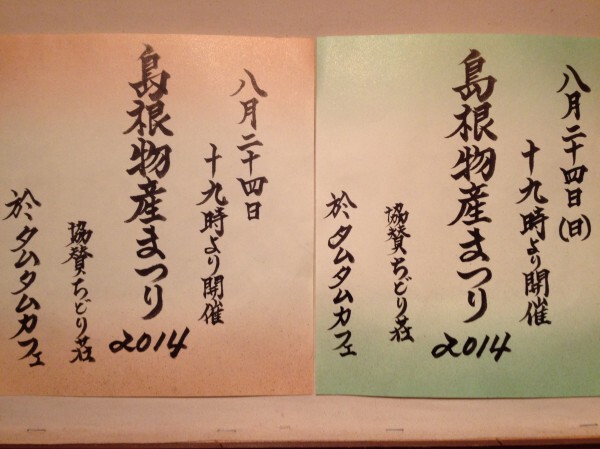 八月二十四日(日)
十九時より開催
島根物産まつり
2014
協賛ちどり荘
於ミタムタムカフェ
八月二十四日
十九時より開催
島根物産まつり
2014
協賛ちどり荘
於ミタムタムカフェ